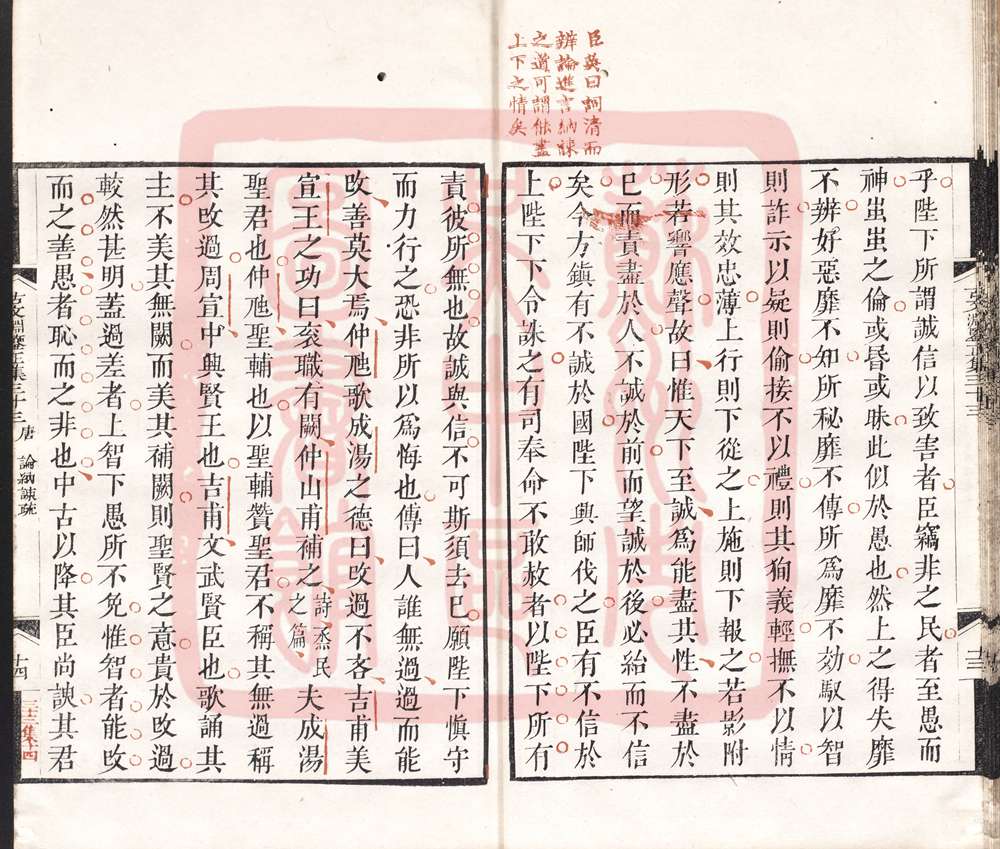 臣英曰詞清而
辨論進言納諫
之道可謂能盡
上下之情矣
乎陛下所謂誠信以致害者臣竊非之民者至愚而
神蚩蚩之倫或昏或昧此似於愚也然上之得失靡
不辨好惡靡不知所秘靡不傳所為靡不効馭以智
則詐示以疑則偷接不以禮則其狥義輕撫不以情
則其效忠薄上行則下從之上施則下報之若影附
形若響應聲故曰惟天下至誠為能盡其性不盡於
已而責盡於人不誠於前而望誠於後必紿而不信
矣今方鎮有不誠於國陛下興師伐之臣有不信於
上陛下下令誅之有司奉命不敢赦者以陛下所有
責彼所無也故誠與信不可斯須去已願陛下愼守
而力行之恐非所以爲悔也傳曰人誰無過過而能
攺善莫大焉仲虺歌成湯之德曰攺過不吝吉甫美
宣王之功曰衮職有闕仲山甫補之詩烝民之篇夫成湯
聖君也仲虺聖輔也以聖輔贊聖君不稱其無過稱
其攺過周宣中興賢王也吉甫文武賢臣也歌誦其
主不美其無闕而美其補闕則聖賢之意貴於攺過
較然甚明蓋過差者上智下愚所不免惟智者能攺
而之善愚者恥而之非也中古以降其臣尚諛其君
古文淵鑒正集三十三 唐 論納諫疏
十四
三十三集 十四